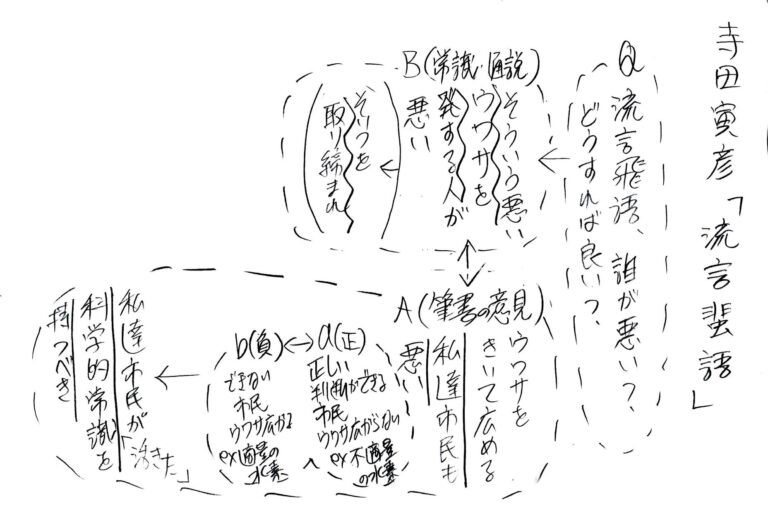 寺田寅彦「流言蜚語」
Q
流言飛語、誰が悪い?、
どうすれば良い?、
B(常識・通説)
そういう悪い
ウワサを
発する人が
悪い
そいつを
取り締まれ
A(筆者の意見)
ウワサを
きいて広める
私達市民も
悪い
a(正)
正しい
判断ができる
市民
ウワサ広がらない
ex不適量
の水素
b(負)
できない
市民
ウワサ広がる
ex適量の
水素
私達市民が「活きた」
科学的常識を
持つべき